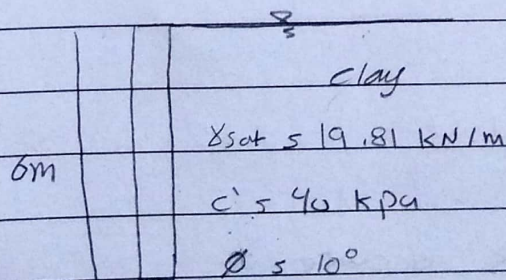 clay
γsat = 19.81 kN/m
6m
c' = 40 kpa
φ = 10°